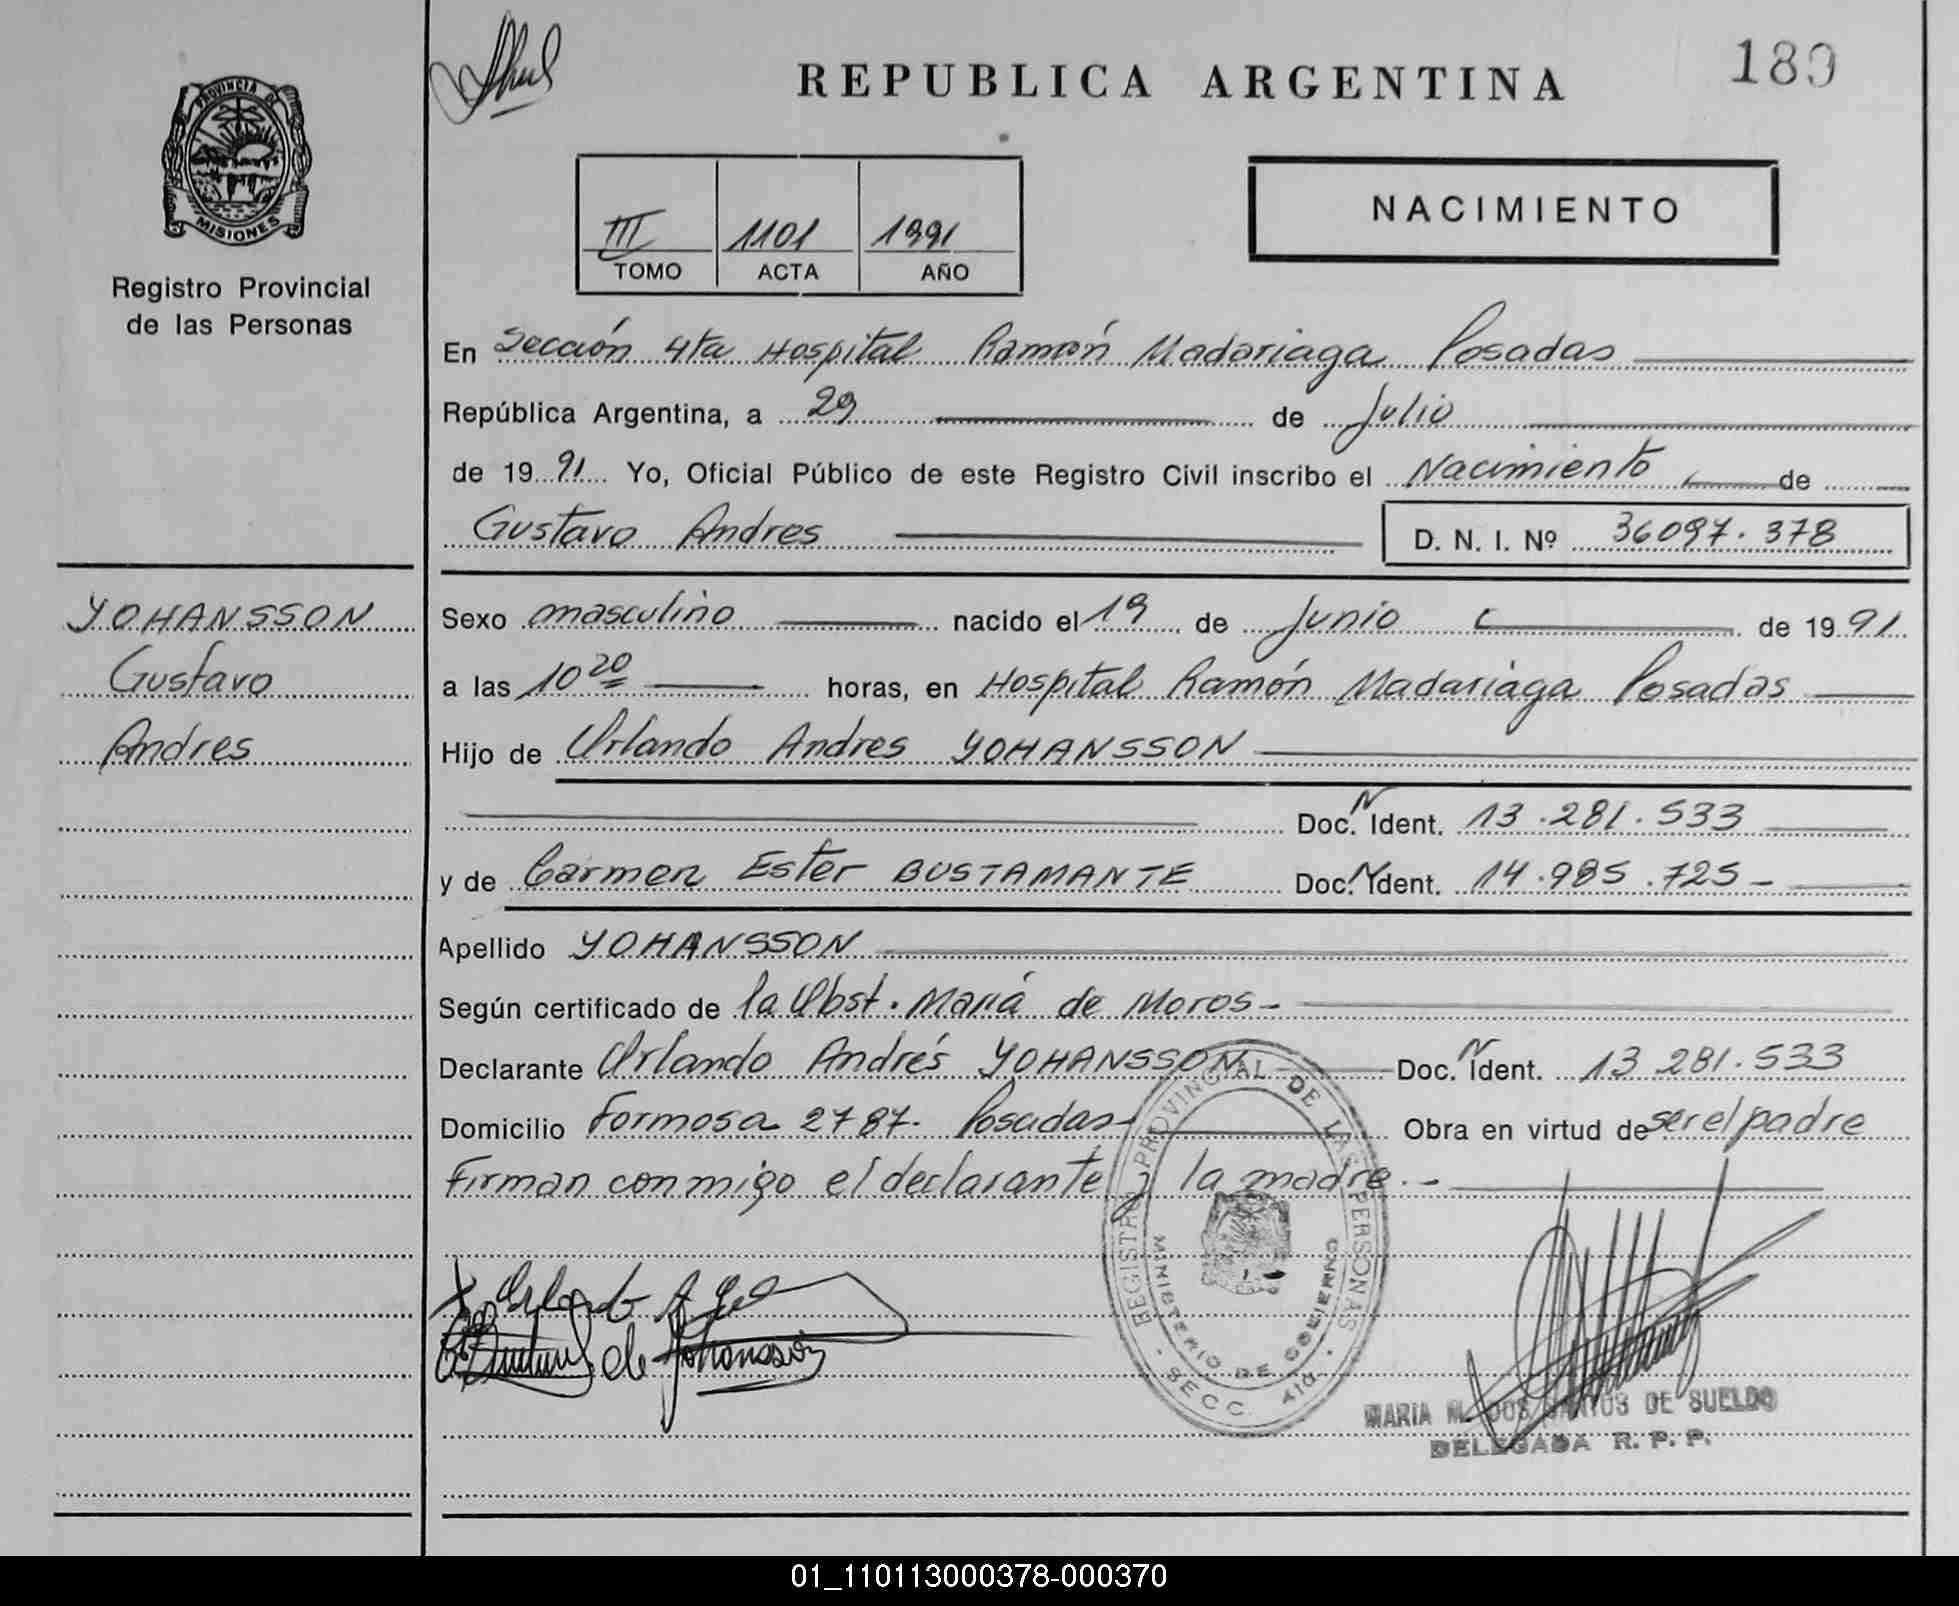 189
REPUBLICA ARGENTINA
PROVINCIA DE
MISIONES
Registro Provincial
de las Personas
III 1101 1991
TOMO ACTA AÑO
NACIMIENTO
En Sección 4ta Hospital Ramón Madariaga Posadas
República Argentina, a 29 de Julio
de 1991 Yo, Oficial Público de este Registro Civil inscribo el Nacimiento de
Gustavo Andres D. N. I. Nº 36097.378
YOHANSSON
Gustavo
Andres
Sexo masculino nacido el 19 de Junio de 1991
a las 10 20 horas, en Hospital Ramón Madariaga Posadas
Hijo de Orlando Andres YOHANSSON
Doc. N Ident. 13.281.533
y de Carmen Ester BUSTAMANTE Doc. N Ident. 14.985.725-
Apellido YOHANSSON
Según certificado de la Obst. María de Moros-
Declarante Orlando Andrés YOHANSSON Doc. N Ident. 13.281.533
Domicilio Formosa 2787. Posadas- Obra en virtud de ser el padre
Firman conmigo el declarante y la madre.-
REGISTRO PROVINCIAL DE LAS PERSONAS
MINISTERIO DE GOBIERNO
SECC. 4ta.
de Yohansson
MARIA M. DOS SANTOS DE SUELDO
DELEGADA R. P. P.
01_110113000378-000370